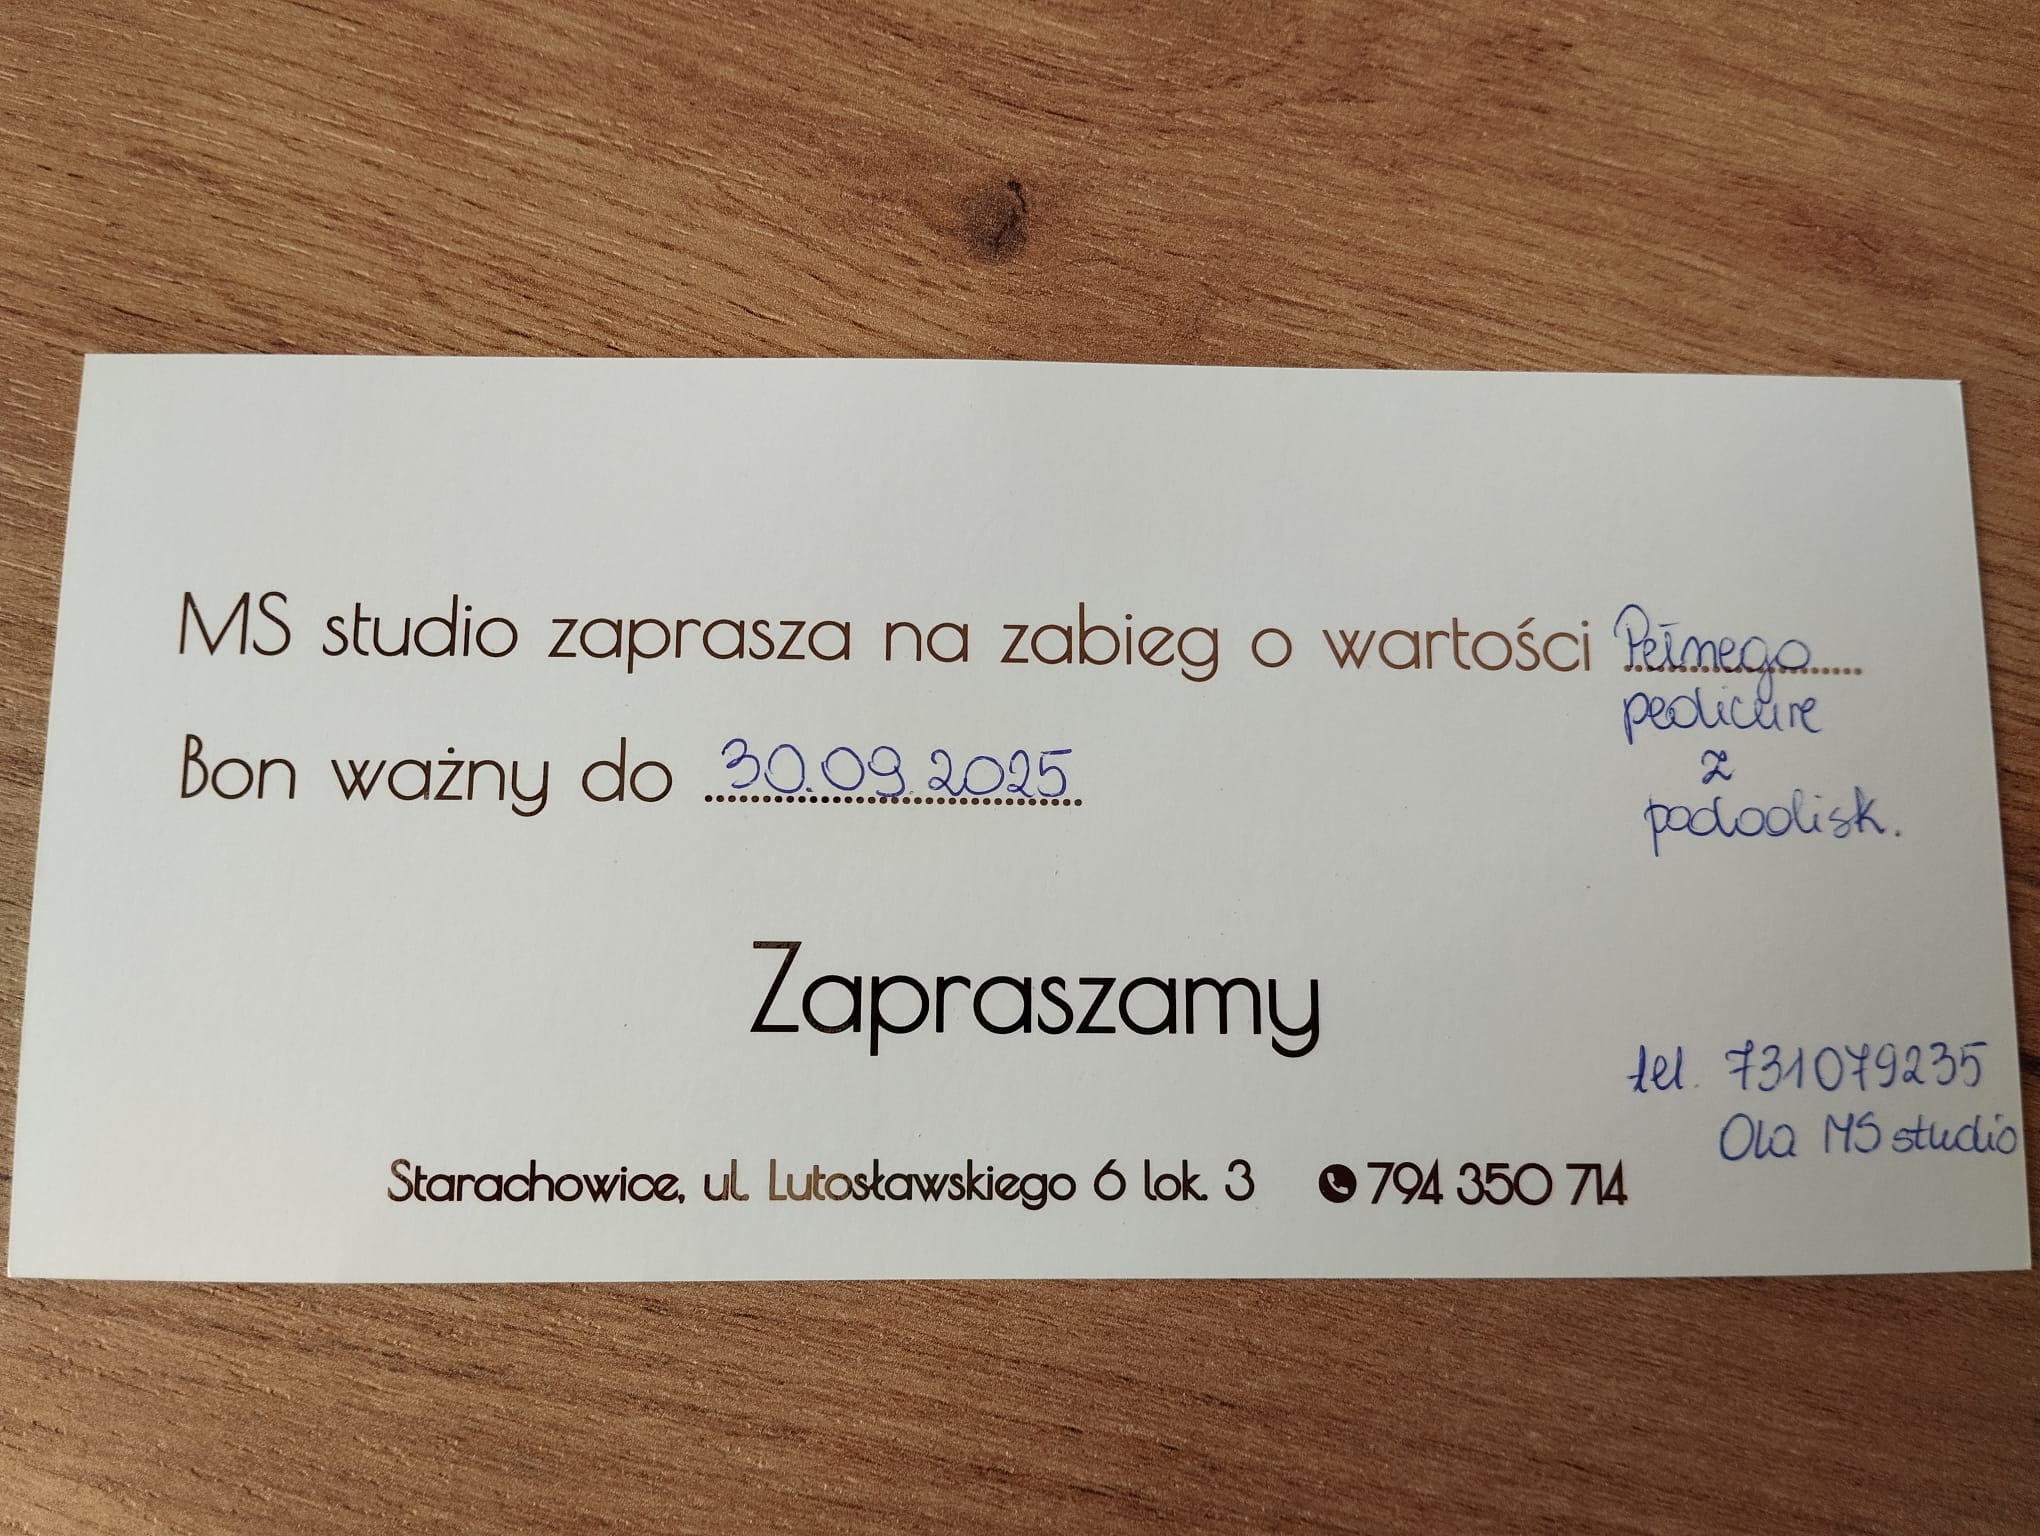 MS studio zaprasza na zabieg o wartości Pełnego
pedicure
z
podoolisk.
Bon ważny do 30.09.2025
Zapraszamy
tel. 731079235
Ola MS studio
Starachowice, ul. Lutosławskiego 6 lok. 3 794 350 714